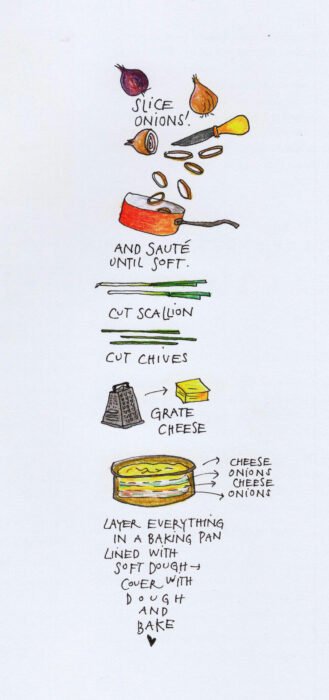 SLICE
ONIONS!
AND SAUTÉ
UNTIL SOFT.
CUT SCALLION
CUT CHIVES
GRATE
CHEESE
CHEESE
ONIONS
CHEESE
ONIONS
LAYER EVERYTHING
IN A BAKING PAN
LINED WITH
SOFT DOUGH →
COVER WITH
DOUGH
AND
BAKE